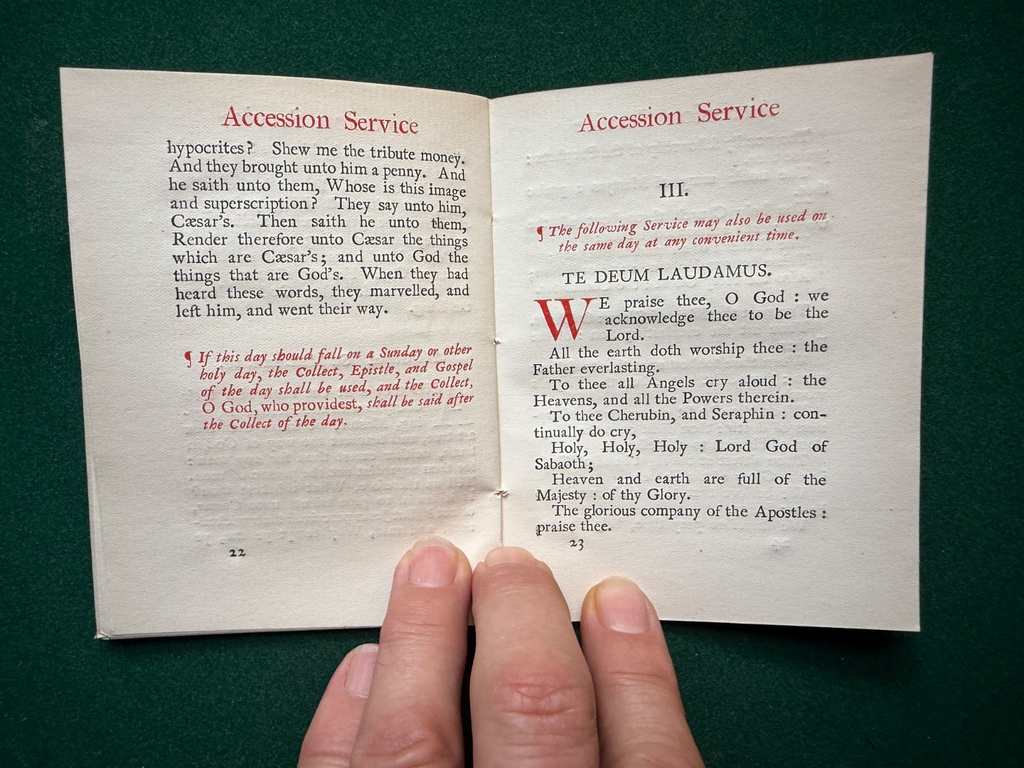 Accession Service
hypocrites? Shew me the tribute money.
And they brought unto him a penny. And
he saith unto them, Whose is this image
and superscription? They say unto him,
Cæsar's. Then saith he unto them,
Render therefore unto Cæsar the things
which are Cæsar's; and unto God the
things that are God's. When they had
heard these words, they marvelled, and
left him, and went their way.
¶ If this day should fall on a Sunday or other
holy day, the Collect, Epistle, and Gospel
of the day shall be used, and the Collect,
O God, who providest, shall be said after
the Collect of the day.
22
Accession Service
III.
¶ The following Service may also be used on
the same day at any convenient time.
TE DEUM LAUDAMUS.
WE praise thee, O God : we
acknowledge thee to be the
Lord.
All the earth doth worship thee : the
Father everlasting.
To thee all Angels cry aloud : the
Heavens, and all the Powers therein.
To thee Cherubin, and Seraphin : con-
tinually do cry,
Holy, Holy, Holy : Lord God of
Sabaoth;
Heaven and earth are full of the
Majesty : of thy Glory.
The glorious company of the Apostles :
praise thee.
23